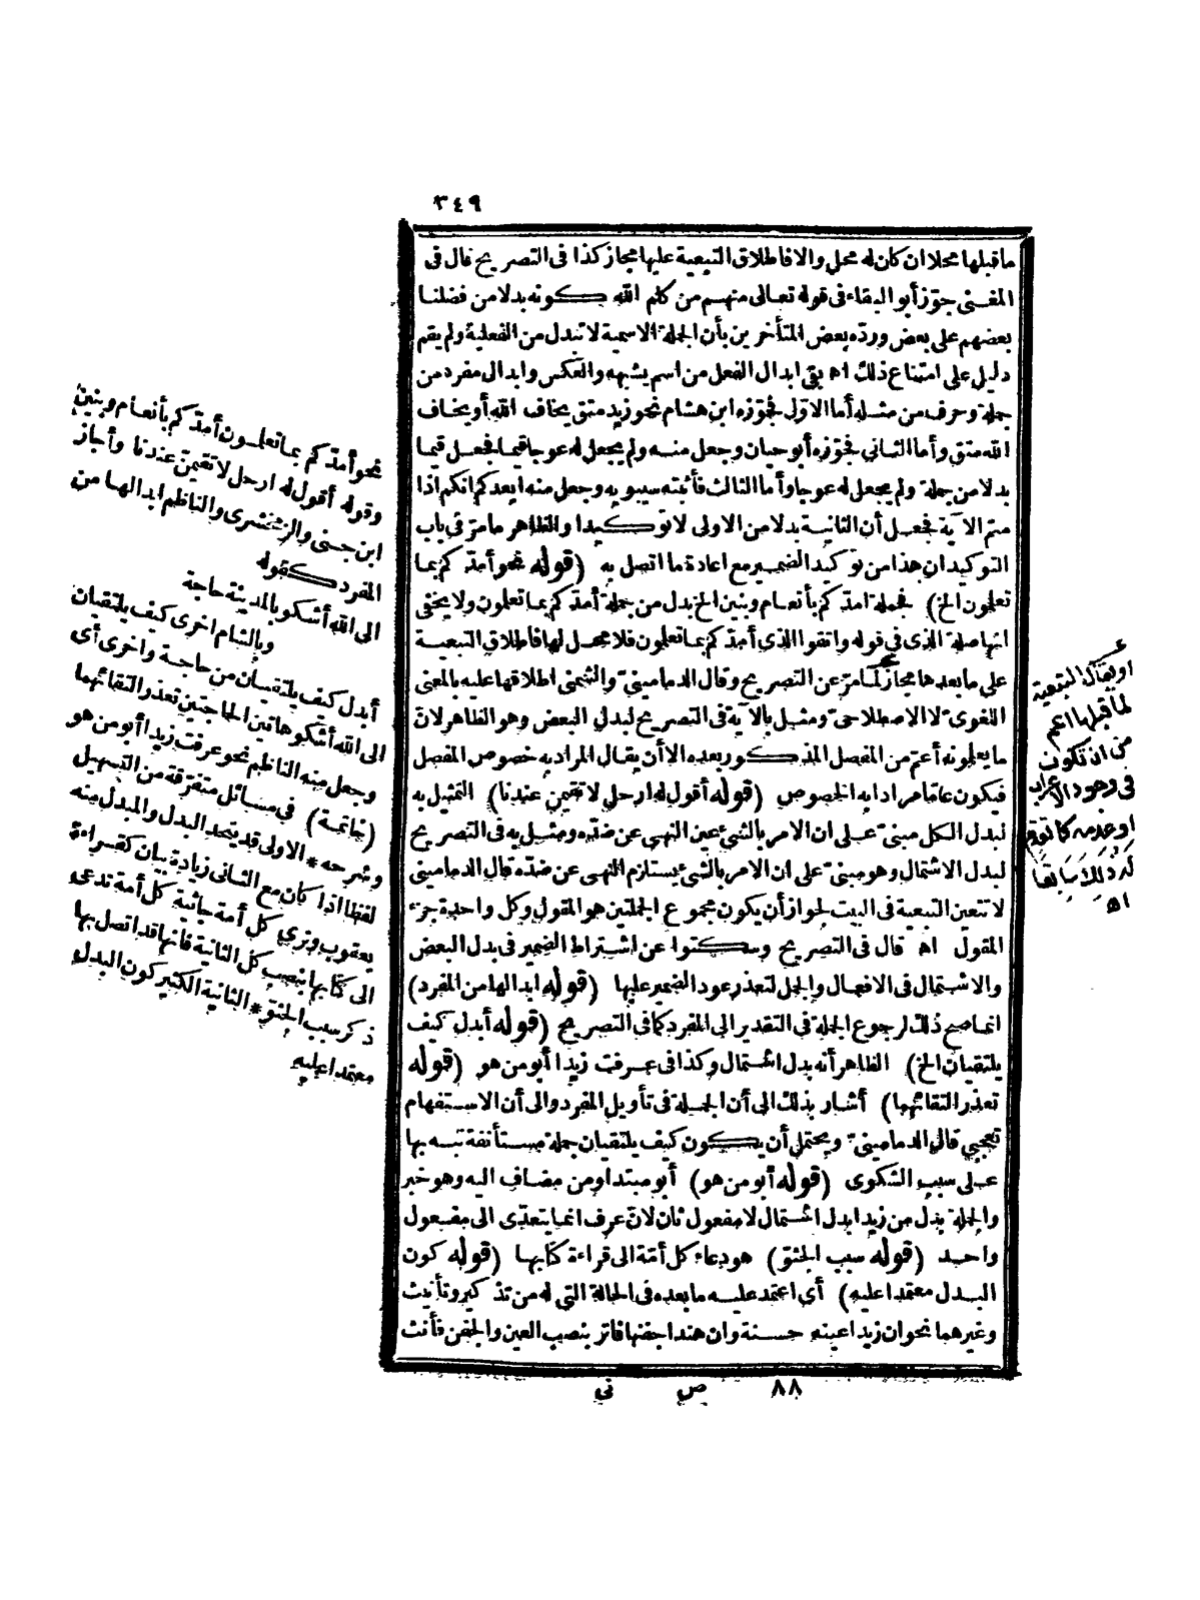 ٣٤٩
ما قبلها محلا ان كان له محل والا فاطلاق التبعية عليها مجاز كذا فى التصريح قال فى
المغنى جوّز أبو البقاء فى قوله تعالى منهم من كلم الله كونه بدلا من فضلنا
بعضهم على بعض وردّه بعض المتأخرين بأن الجملة الاسمية لا تبدل من الفعلية ولم يقم
دليل على امتناع ذلك اه بقى ابدال الفعل من اسم يشبهه والعكس وابدال مفرد من
جملة وحرف من مثله أما الاوّل فجوّزه ابن هشام نحو زيد متق يخاف الله أو يخاف
الله متق وأما الثانى فجوّزه أبو حيان وجعل منه ولم يجعل له عوجا قيما فجعل قيما
بدلا من جملة ولم يجعل له عوجا وأما الثالث فأثبته سيبويه وجعل منه ايعدكم انكم اذا
متم الآية فجعل أن الثانية بدلا من الاولى لا توكيدا والظاهر ما مرّ فى باب
التوكيد ان هذا من توكيد الضمير مع اعادة ما اتصل به (قوله نحو أمدّكم بما
تعلمون الخ) فجملة امدّكم بأنعام وبنين الخ بدل من جملة أمدّكم بما تعلمون ولا يخفى
انها صلة الذى فى قوله واتقوا الذى أمدّكم بما تعلمون فلا محل لها فاطلاق التبعية
على ما بعدها مجاز كما مرّ عن التصريح وقال الدمامينىّ والشمنى اطلاقها عليه بالمعنى
اللغوى لا الاصطلاحى ومثل بالآية فى التصريح لبدل البعض وهو الظاهر لانّ
ما يعلمونه أعمّ من المفصل المذكور بعده الا أن يقال المراد به خصوص المفصل
فيكون عاما مرادا به الخصوص (قوله أقول له ارحل لا تقيمن عندنا) التمثيل به
لبدل الكل مبنىّ على ان الامر بالشئ عين النهى عن ضدّه ومثل به فى التصريح
لبدل الاشتمال وهو مبنىّ على ان الامر بالشئ يستلزم النهى عن ضدّه قال الدمامينى
لا تتعين التبعية فى البيت لجواز أن يكون مجموع الجملتين هو المقول وكل واحدة جزء
المقول اه قال فى التصريح وسكتوا عن اشتراط الضمير فى بدل البعض
والاشتمال فى الافعال والجمل لتعذر عود الضمير عليها (قوله ابدالها من المفرد)
انما صح ذلك لرجوع الجملة فى التقدير الى المفرد كما فى التصريح (قوله أبدل كيف
يلتقيان الخ) الظاهر أنه بدل اشتمال وكذا فى عرفت زيدا أبو من هو (قوله
تعذر التقائهما) أشار بذلك الى أن الجملة فى تأويل المفرد والى أن الاستفهام
تعجبي قال الدمامينىّ ويحتمل أن يكون كيف يلتقيان جملة مستأنفة نبه بها
على سبب الشكوى (قوله أبو من هو) أبو مبتدا ومن مضاف اليه وهو خبر
والجملة بدل من زيدا بدل اشتمال لا مفعول ثان لانّ عرف انما يتعدّى الى مفعول
واحد (قوله سبب الجثوّ) هو دعاء كل أمّة الى قراءة كتابها (قوله كون
البدل معتمدا عليه) أى اعتمد عليه ما بعده فى الحالة التى له من تذكير وتأنيث
وغيرهما نحو ان زيدا عينه حسنة وان هندا جفنها فاتر بنصب العين والجفن فأنث
٨٨ ص نى
نحو أمدّكم بما تعلمون أمدّكم بأنعام وبنين
وقوله أقول له ارحل لا تقيمن عندنا وأجاز
ابن جنى والزمخشرى والناظم ابدالها من
المفرد كقوله
الى الله أشكو بالمدينة حاجة
وبالشام اخرى كيف يلتقيان
أبدل كيف يلتقيان من حاجة واخرى أى
الى الله أشكو هاتين الحاجتين تعذر التقائهما
وجعل منه الناظم نحو عرفت زيدا أبو من هو
(خاتمة) فى مسائل متفرّقة من التسهيل
وشرحه * الاولى قد يتحد البدل والمبدل منه
لفظا اذا كان مع الثانى زيادة بيان كقراءة
يعقوب وترى كل أمة جاثية كل أمة تدعى
الى كتابها بنصب كل الثانية فانها قد اتصل بها
ذكر سبب الجثوّ * الثانية الكثير كون البدل
معتمدا عليه
أو يقال التبعية
لما قبلها اعم
من ان تكون
فى وجود الاعراب
او عدمه كما تقدم
له ذلك سابقا
اه